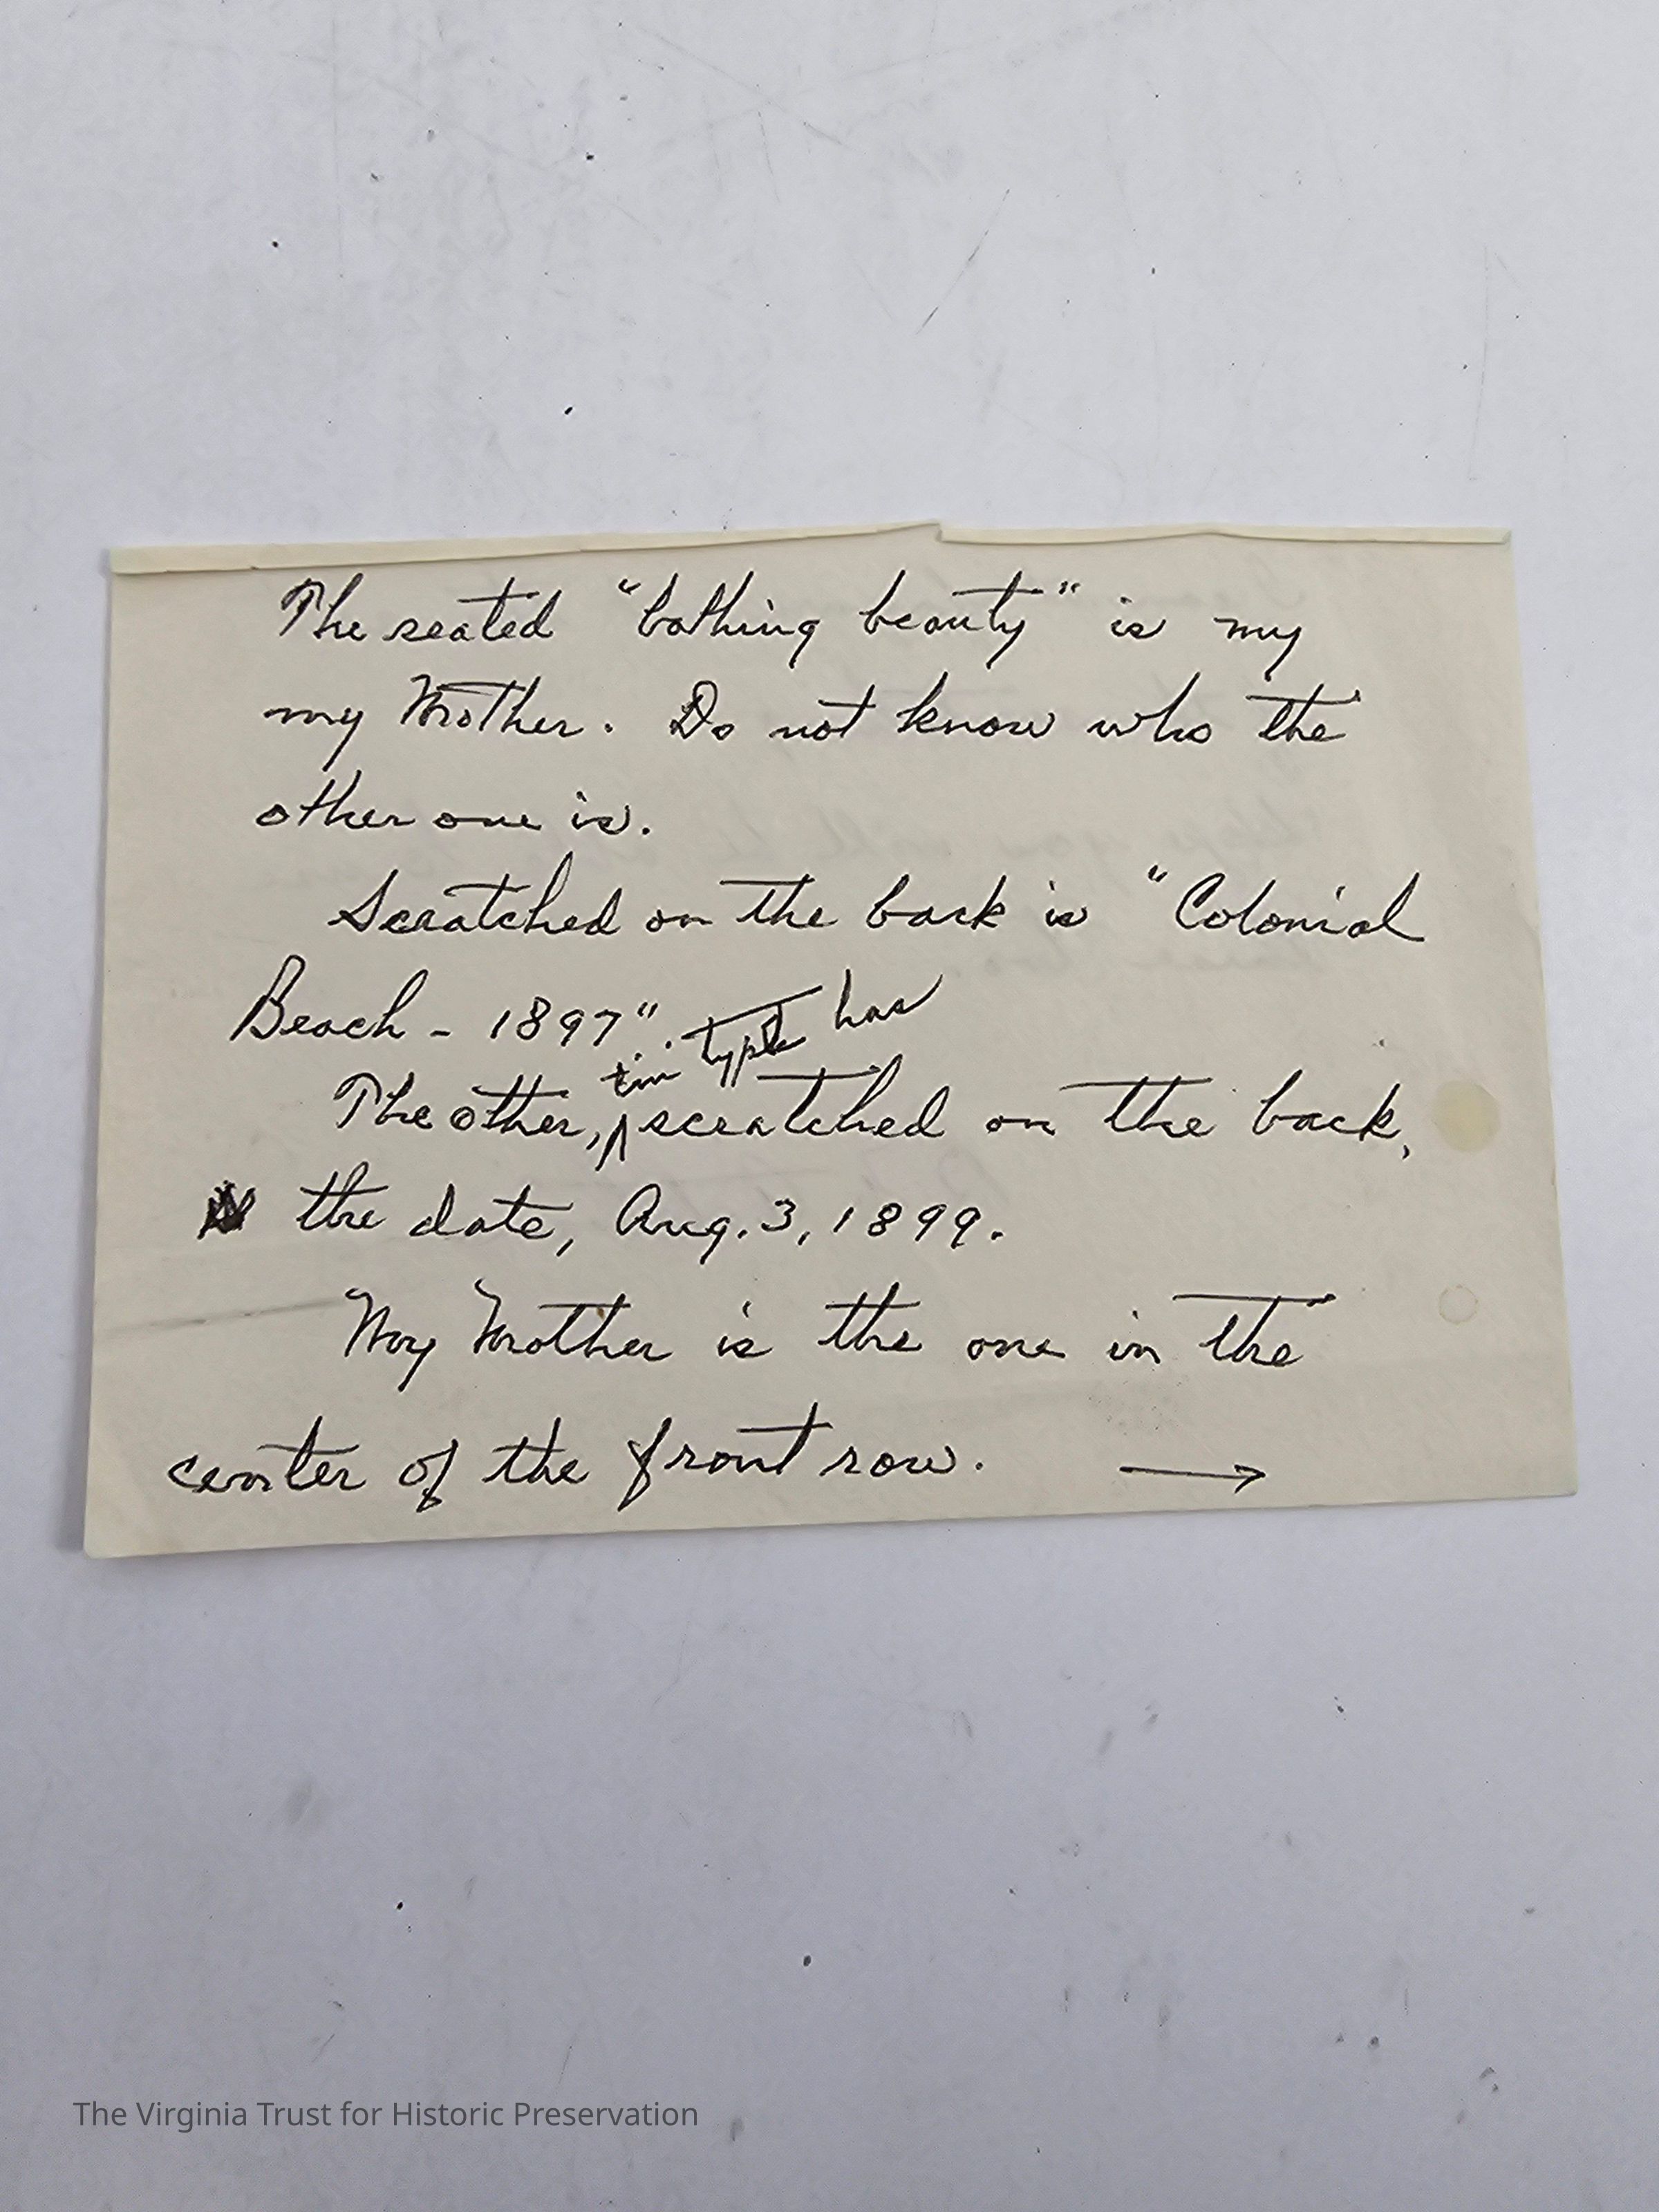 The seated "bathing beauty" is my
my Mother. Do not know who the
other one is.
Scratched on the back is "Colonial
Beach - 1897".
tin type has
The other, scratched on the back,
the date, Aug. 3, 1899.
My Mother is the one in the
center of the front row. →
The Virginia Trust for Historic Preservation